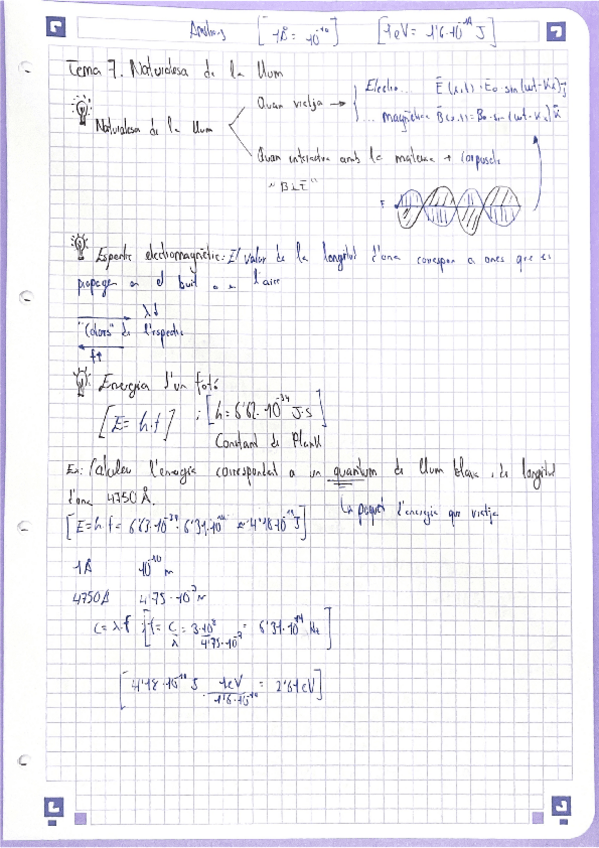 [1Å = 10^-10] [1eV = 1'6·10^-19 J]
Tema 7. Naturalesa de la llum
Quan viatja → Electro... E(x,t) = E0·sin(wt-Kx)j
Naturalesa de la llum
... magnètica B(x,t) = B0·sin(wt-Kx)k
Quan interactua amb la matèria → Corpuscle
"B⊥E"
Espectre electromagnètic: El valor de la longitud d'ona correspon a ones que es
propaguen en el buit o en l'aire
λ↓
"Colors" de l'espectre
f↑
Energia d'un fotó
[E = h·f] ; [h = 6'62·10^-34 J·S]
Constant de Planck
Ex: Calculeu l'energia corresponent a un quantum de llum blava, de longitud
d'ona 4750 Å.
↳ paquet d'energia que viatja
[E = h·f = 6'63·10^-34 · 6'31·10^14 ≈ 4'18·10^-19 J]
1Å 10^-10 m
4750Å 4'75·10^-7 m
C = λ·f [f = C/λ = 3·10^8/4'75·10^-7 = 6'31·10^14 Hz]
[4'18·10^-19 J · 1eV/1'6·10^-19 = 2'61eV]